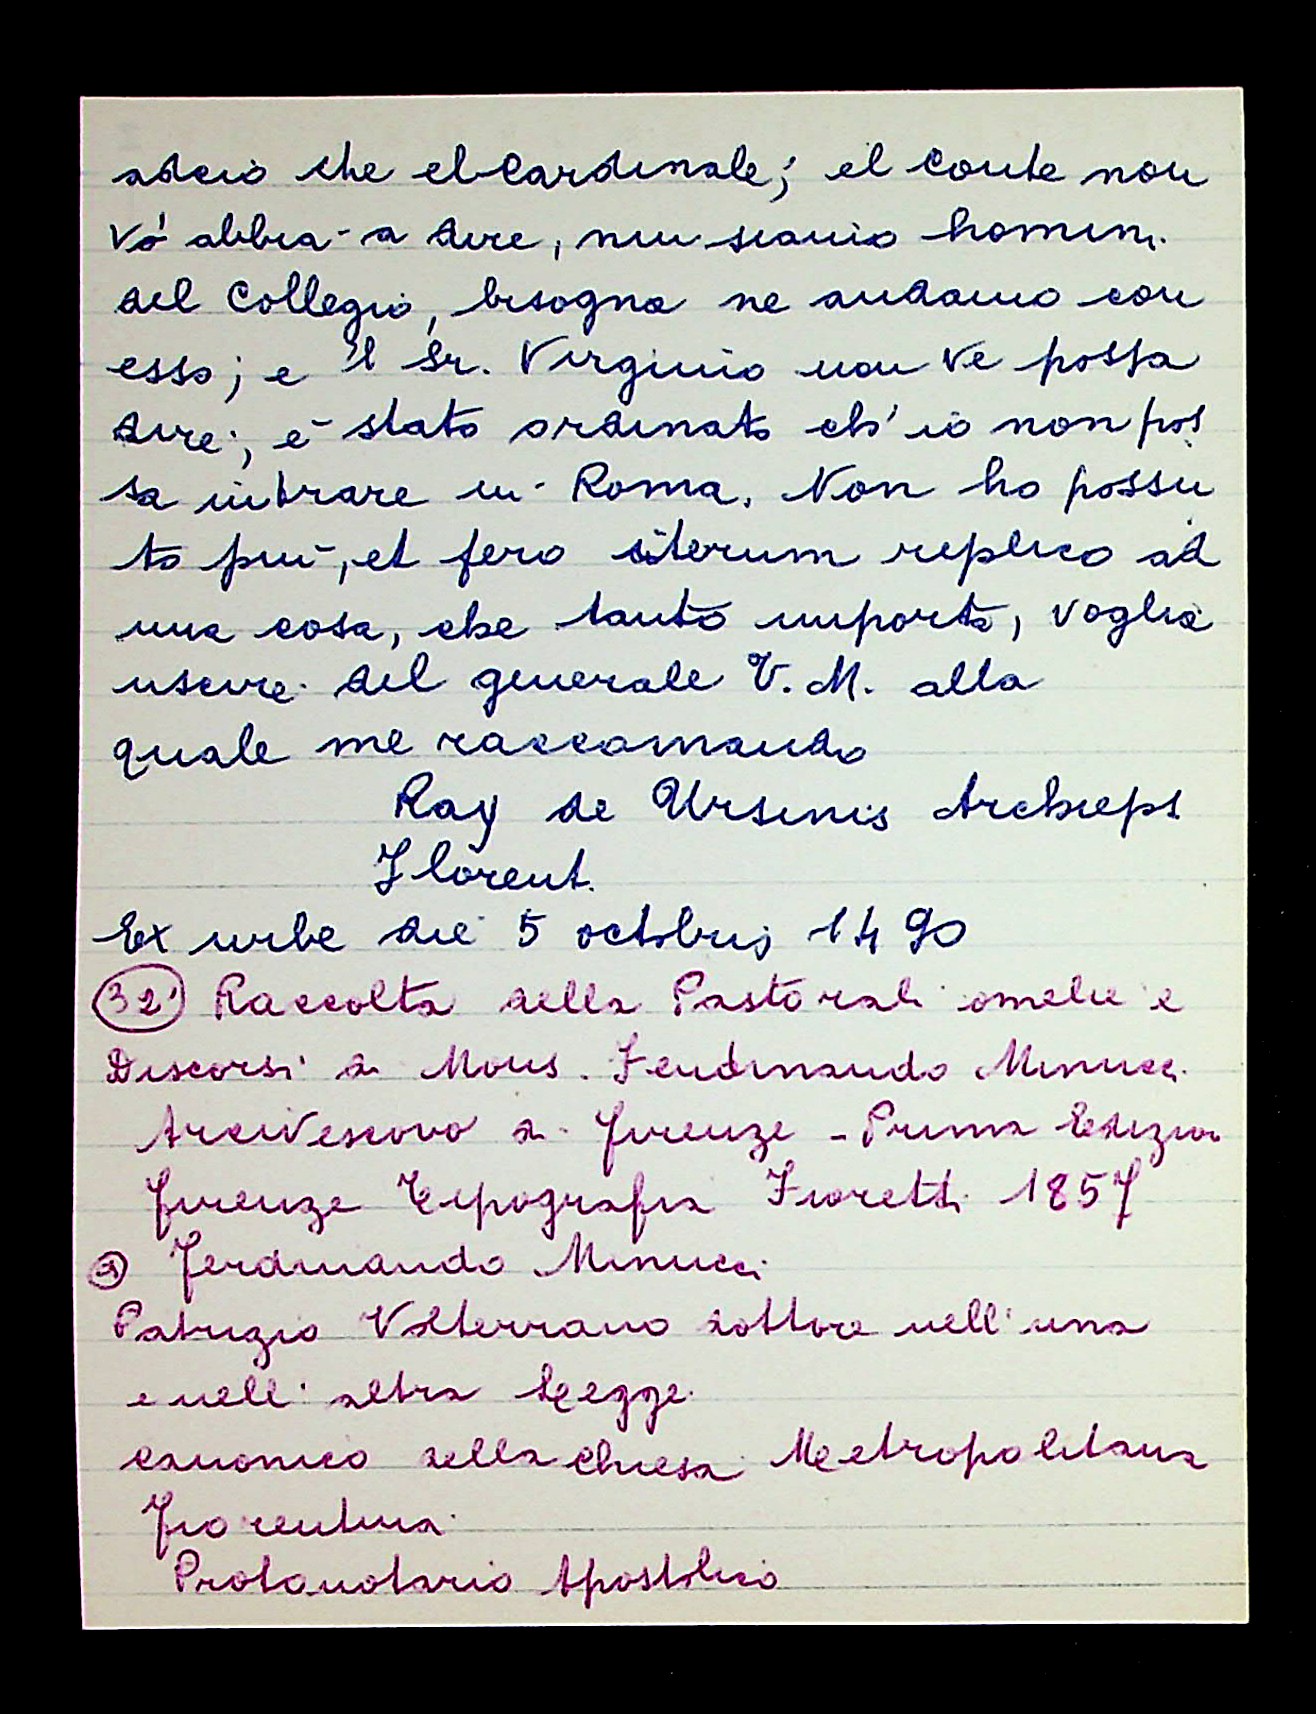 acciò che el Cardinale; el Conte non
vò abbia a dire, nui siamo homini
del Collegio, bisogna ne andamo con
esso; e 'l Sr. Virginio non ve possa
dire; è stato ordinato ch' io non pos
sa intrare in Roma. Non ho possu
to più, et fero iterum replico ad
una cosa, che tanto importa, voglia
uscire del generale V. M. alla
quale me raccomando
Ray de Ursinis Archieps
Florent.
Ex urbe die 5 octobris 1490
32) Raccolta della Pastorali omelie e
Discorsi di Mons. Ferdinando Minucci
Arcivescovo di Firenze - Prima Edizion
Firenze Tipografia Fioretti 1857
Ferdinando Minucci
Patrizio Volterrano dottore nell' una
e nell' altra Legge
canonico della Chiesa Metropolitana
Fiorentina
Protonotario Apostolico